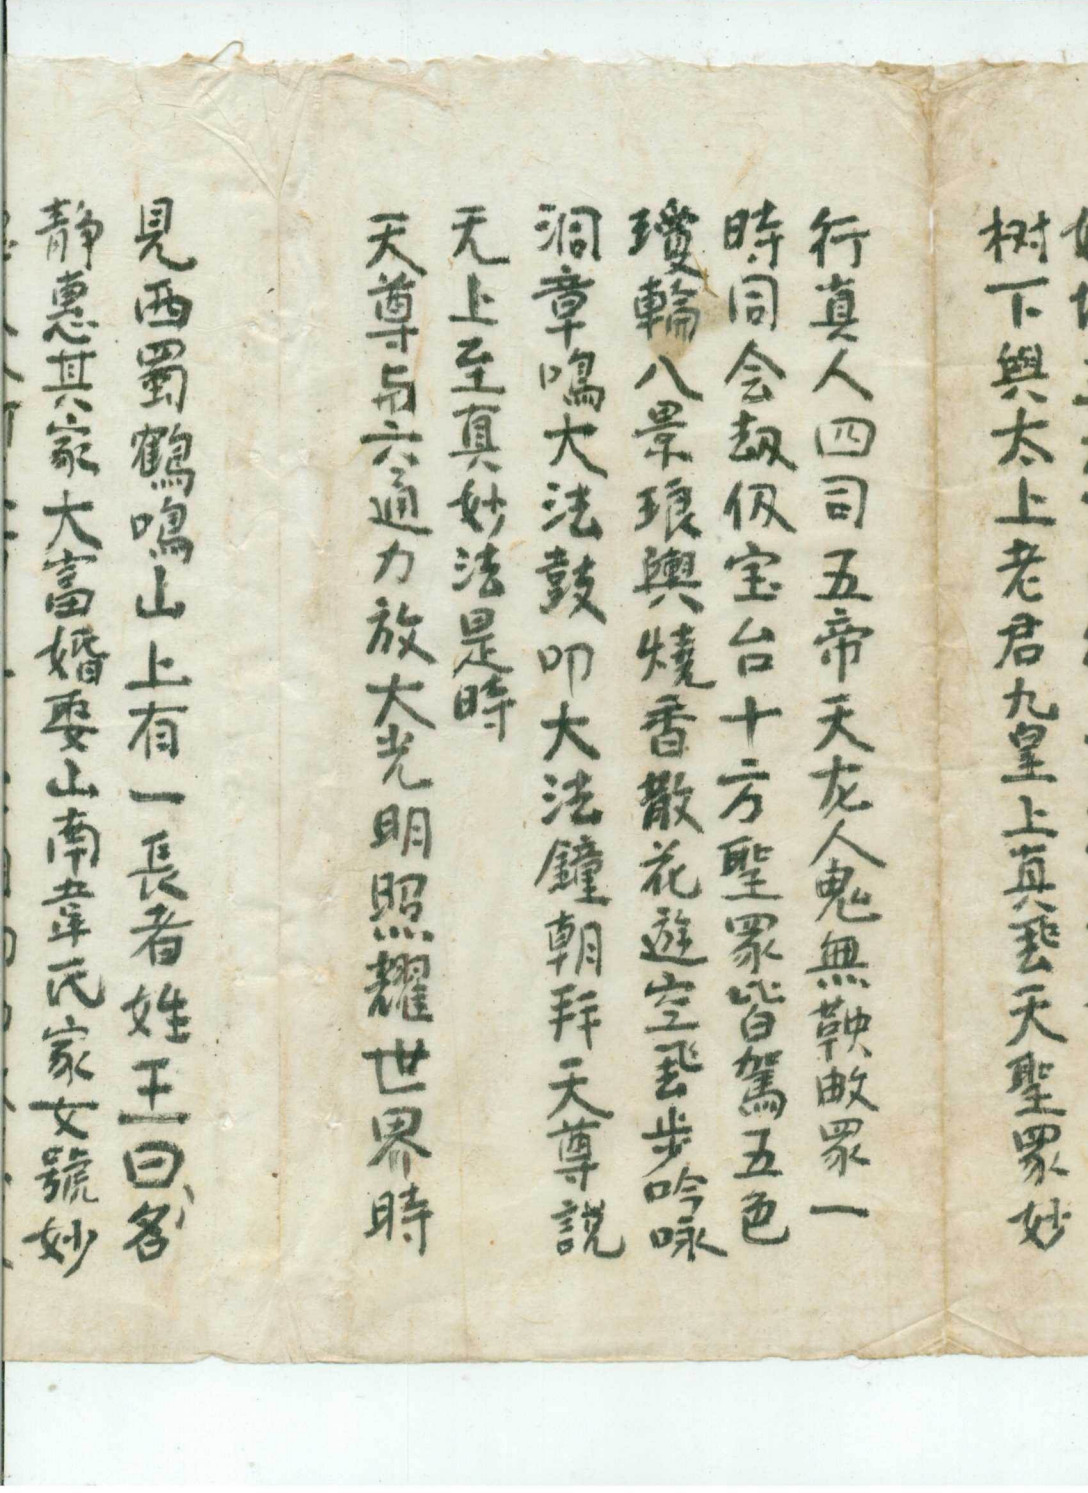 树下與太上老君九皇上真飛天聖眾妙
行真人四司五帝天龙人鬼無鞅畝眾一
時同会劫仞宝台十方聖眾皆駕五色
瓊輪八景琅輿燒香散花遊空飛步吟咏
洞章鳴大法鼓叩大法鐘朝拜天尊説
无上至真妙法是時
天尊与六通力放大光明照耀世界時
見西蜀鶴鳴山上有一長者姓王曰名
靜惠其家大富婚娶山南韋氏家女號妙